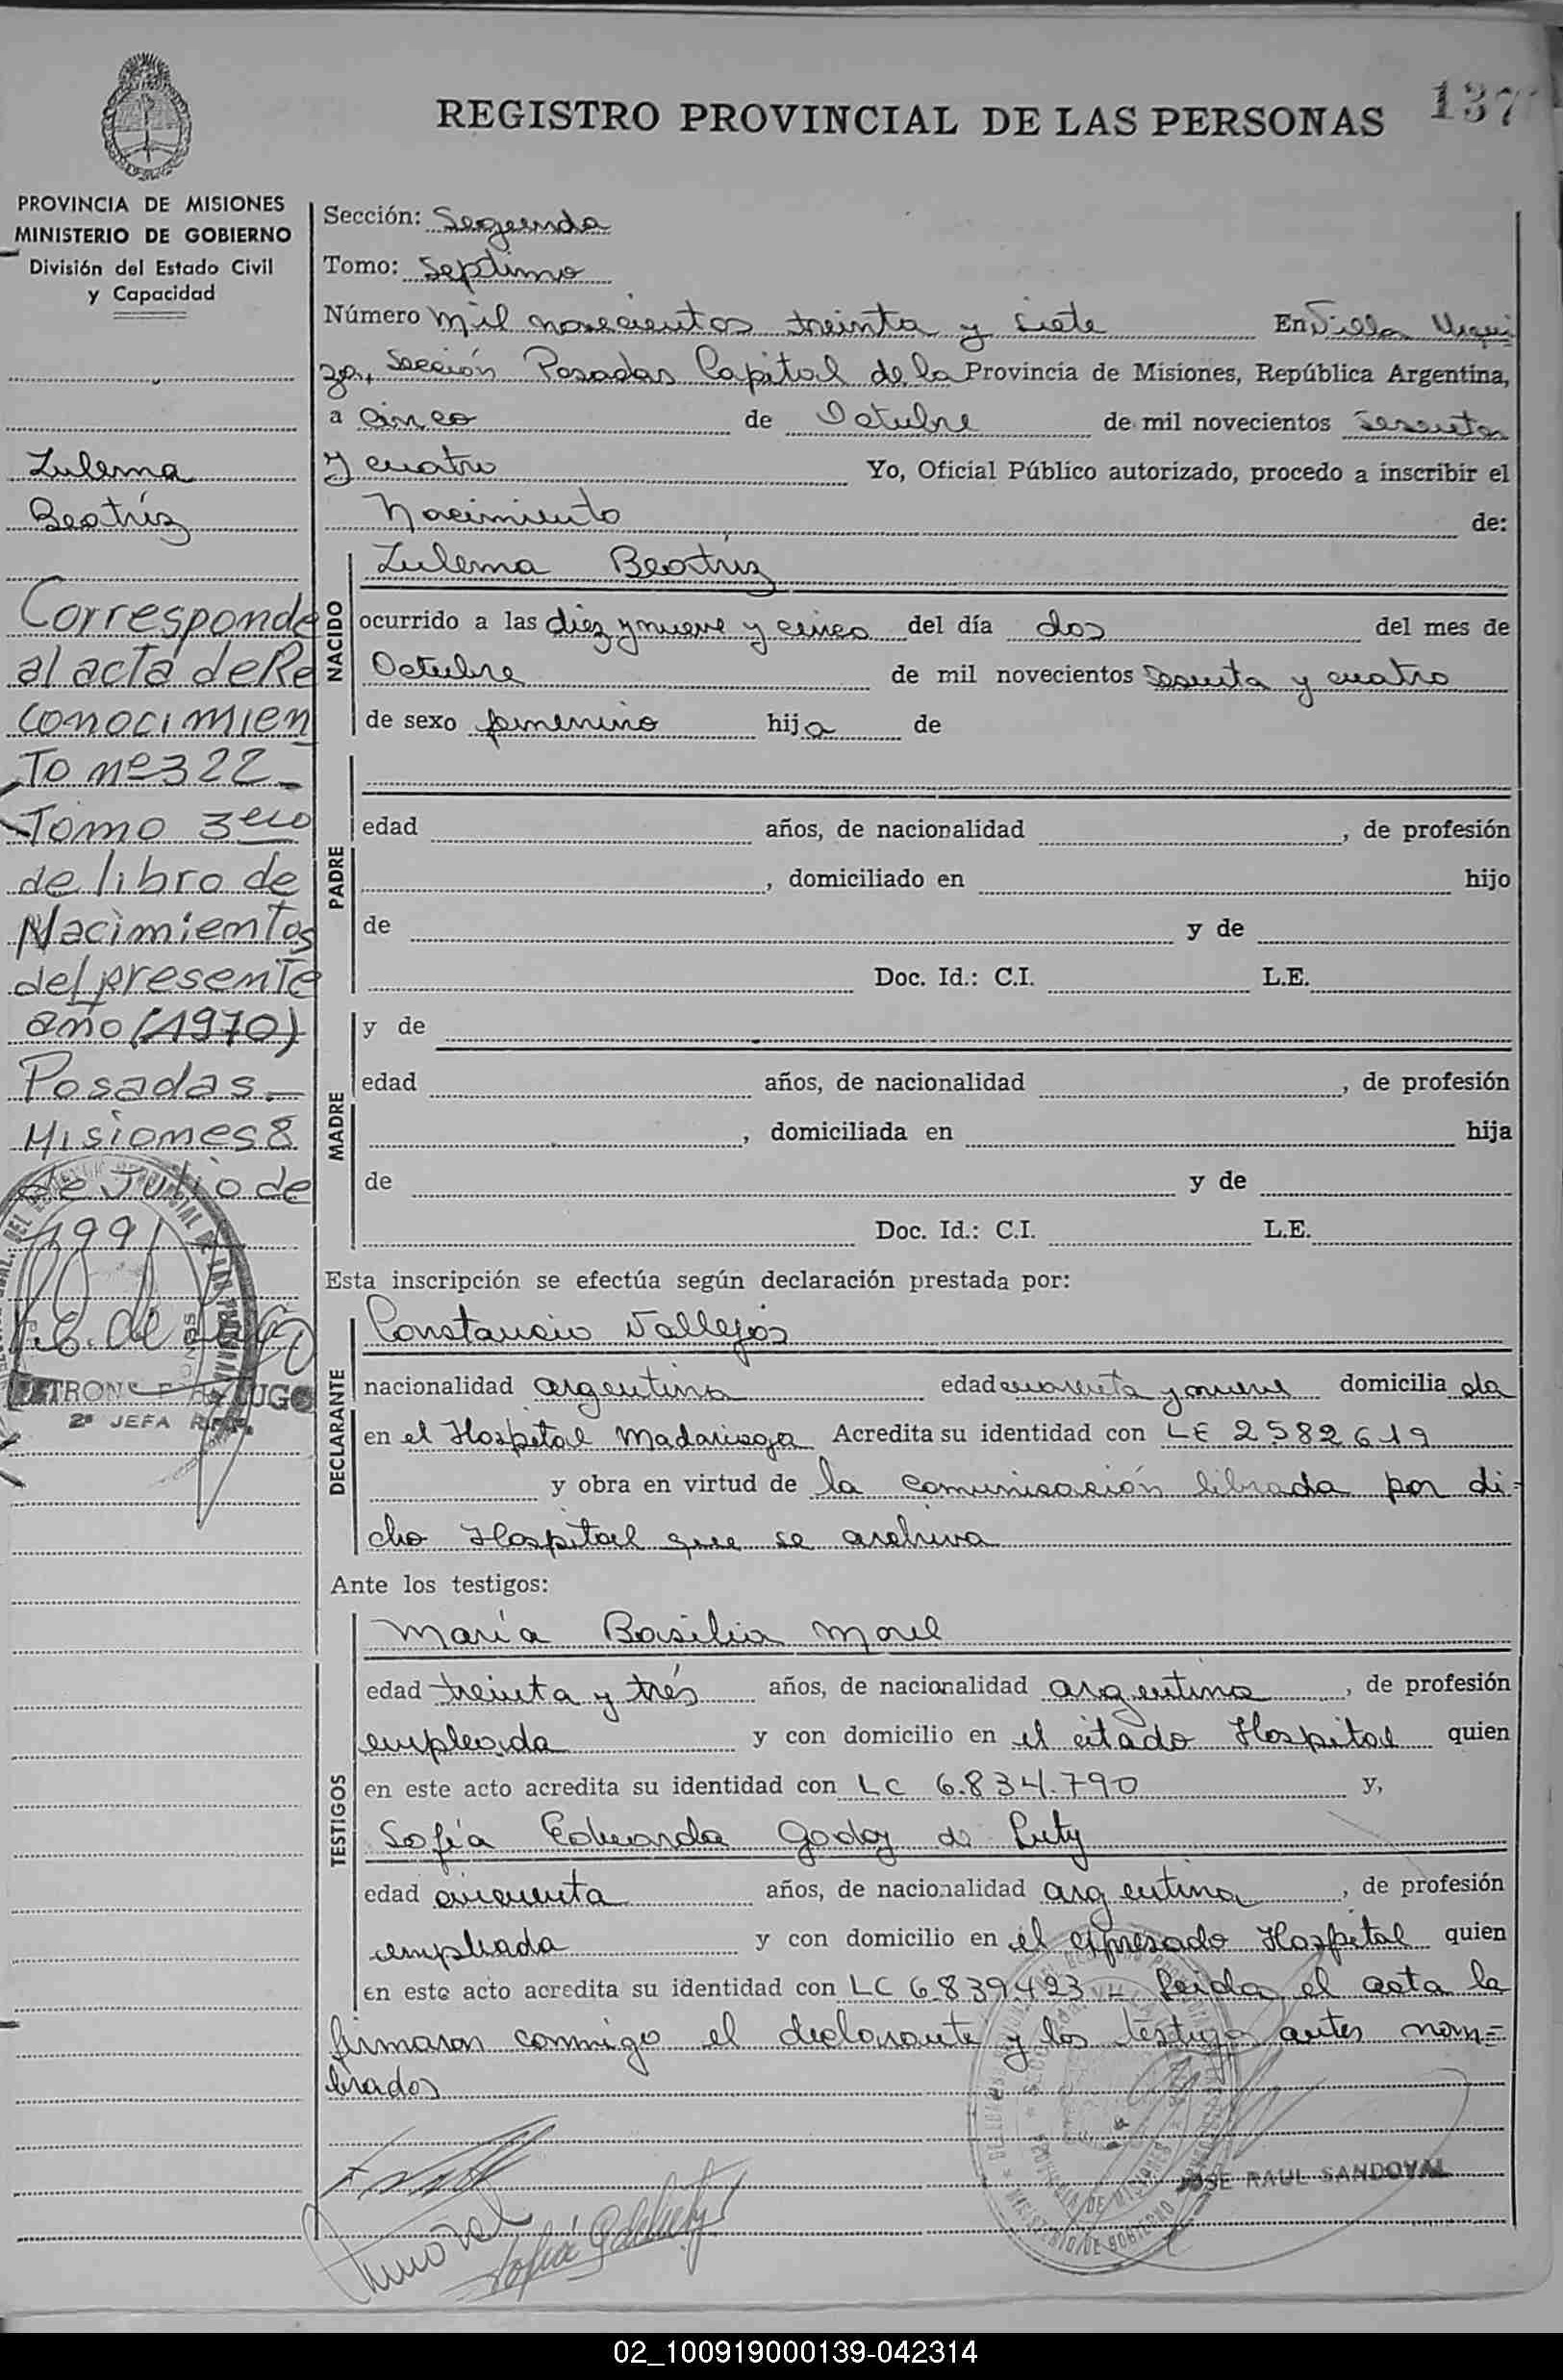 REGISTRO PROVINCIAL DE LAS PERSONAS
137
PROVINCIA DE MISIONES
MINISTERIO DE GOBIERNO
División del Estado Civil
y Capacidad
Zulema
Beatríz
Corresponde
al acta de Re
conocimien
To nº 322_
Tomo 3ero
de libro de
Nacimientos
del presente
año (1970)
Posadas_
Misiones 8
de Julio de
1991
2ª JEFA
Sección: Segunda
Tomo: Septimo
Número mil novecientos treinta y siete En Villa Urqui
za, Sección Posadas Capital de la Provincia de Misiones, República Argentina,
a cinco de Octubre de mil novecientos sesenta
y cuatro Yo, Oficial Público autorizado, procedo a inscribir el
Nacimiento de:
NACIDO
Zulema Beatriz
ocurrido a las diez y nueve y cinco del día dos del mes de
Octubre de mil novecientos sesenta y cuatro
de sexo femenino hija de
PADRE
edad años, de nacionalidad , de profesión
, domiciliado en hijo
de y de
Doc. Id.: C.I. L.E.
MADRE
y de
edad años, de nacionalidad , de profesión
, domiciliada en hija
de y de
Doc. Id.: C.I. L.E.
Esta inscripción se efectúa según declaración prestada por:
DECLARANTE
Constancio Vallejos
nacionalidad argentina edad cuarenta y nueve domicilia da
en el Hospital Madariaga Acredita su identidad con LE 2582619
y obra en virtud de la comunicación librada por di=
cho Hospital que se archiva
Ante los testigos:
TESTIGOS
María Basilia Morel
edad treinta y trés años, de nacionalidad argentina, de profesión
empleada y con domicilio en el citado Hospital quien
en este acto acredita su identidad con LC 6.834.790 y,
Sofía Eduarda Godoy de
edad cincuenta años, de nacionalidad argentina, de profesión
empleada y con domicilio en el expresado Hospital quien
en este acto acredita su identidad con LC 6.839.423 Leída el acta la
firmaron conmigo el declarante y los testigos antes nom=
brados
JOSE RAUL SANDOVAL
02_100919000139-042314